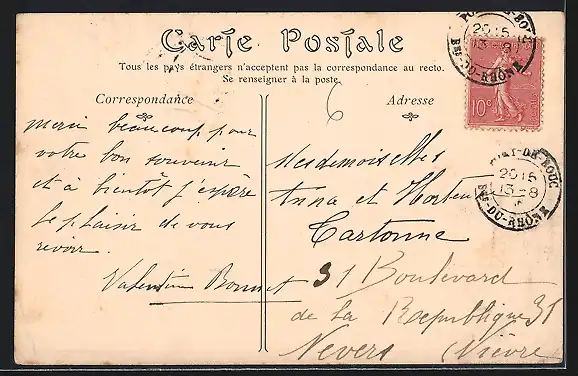 Carte Postale
Tous les pays étrangers n'acceptent pas la correspondance au recto.
Se renseigner à la poste.
Correspondance
Adresse
6
Merci beaucoup pour
votre bon souvenir
et à bientôt j'espère
le plaisir de vous
revoir.
Valentine Bonnet
Mesdemoiselles
Anna et Hortense
Cartonne
31 Boulevard
de la République 31
Nevers (Nièvre
10c
2015
13-8
BES-DU-RHÔNE
PORT-DE-BOUC
2015
13-8
BES-DU-RHÔNE